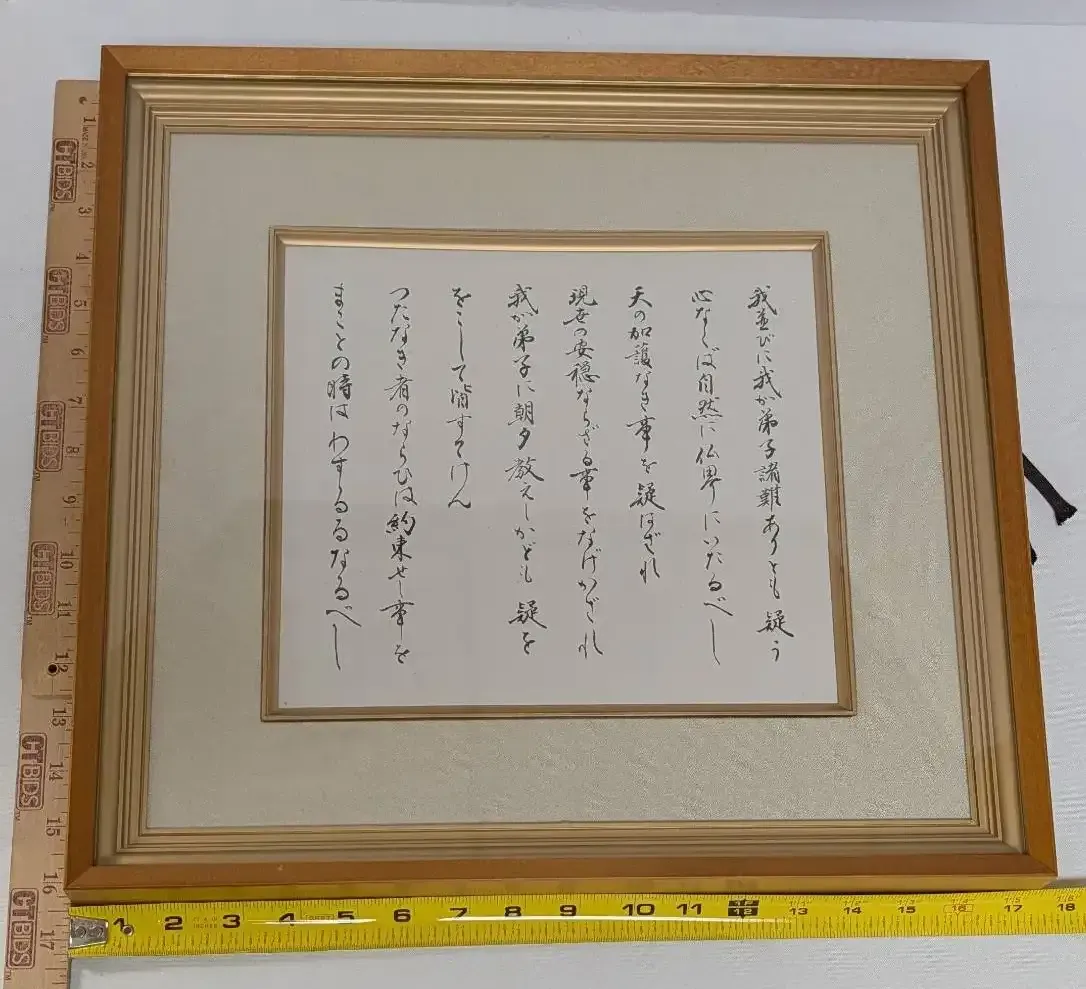 我並びに我が弟子諸難ありとも 疑う
心なくば自然に仏界にいたるべし
天の加護なき事を疑はざれ
現世の安穏ならざる事をなげかざれ
我が弟子に朝夕教えしかども 疑を
をこして皆すてけん
つたなき者のならひは約束せし事を
まことの時はわするるなるべし
CTBDS
CTBDS
CTBDS
CTBDS
CTBDS
CTBDS
1
2
3
4
5
6
7
8
9
10
11
12
13
14
15
16
17
1 2 3 4 5 6 7 8 9 10 11 12 13 14 15 16 17 18